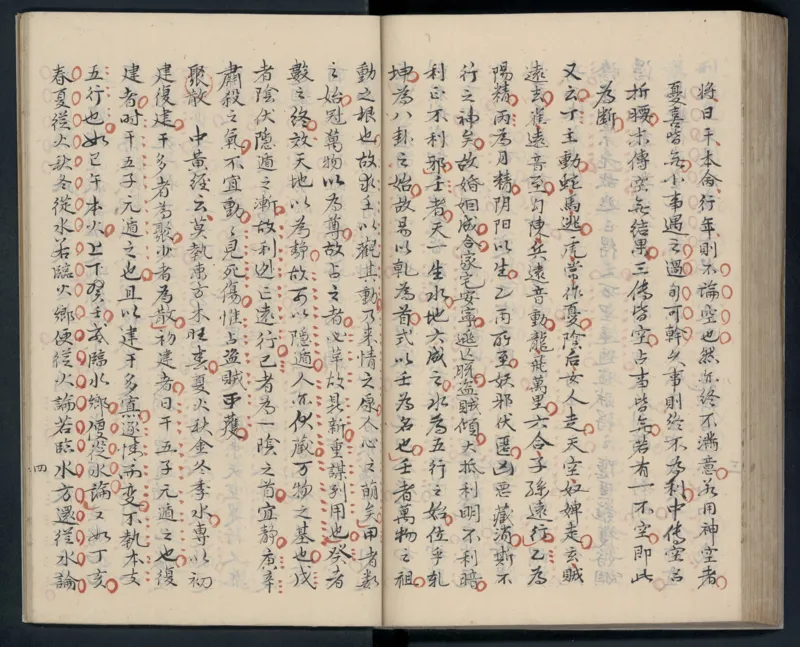 將日干本命行年則不論空也然亦終不滿意若用神空者
憂喜皆無小事遇之過旬可幹久事則終不為利中傳空名
折腰末傳空無結果三傳皆空占事皆無若有一不空即此
為斷
又云丁主動蛇馬逃虎常作憂陰后女人走天空奴婢走玄賊
遠去雀遠音至勾陳兵遠音動龍飛萬里六合子孫遠行乙為
陽精丙為月精陰陽以生乙丙所至妖邪伏匿凶惡藏消斯不
行之神矣故婚姻成合家宅安寧逃亡脫盜賊傾大抵利明不利暗
利正不利邪壬者天一生水地六成之水為五行之始位乎乾
坤為八卦之始故易以乾為首式以壬為名也壬者萬物之祖
動之根也故求壬以觀其動乃來情之原人心之萌矣甲者数
之始冠萬物以為尊故占之者必革故具新重謀別用也癸者
數之終效天地以為靜故可以隱遁人亦伏藏万物之基也戊
者陰伏隱遁之漸故利逃亡遠行己者為一陰之首宜靜庚辛
肅殺之氣不宜動動見死傷惟占盜賊可獲
聚散 中黃經云莫執東方木旺春夏火秋金冬季水專以初
建復建干多者為聚少者為散初建者日干五子元遁之也復
建者时干五子元遁之也且以建干多寡逐情而变不執本支
五行也如戊午本火上下癸壬亥臨水鄉便從水論又如丁亥
春夏從火秋冬從水若臨火鄉便從火論若臨水方還從水論
四